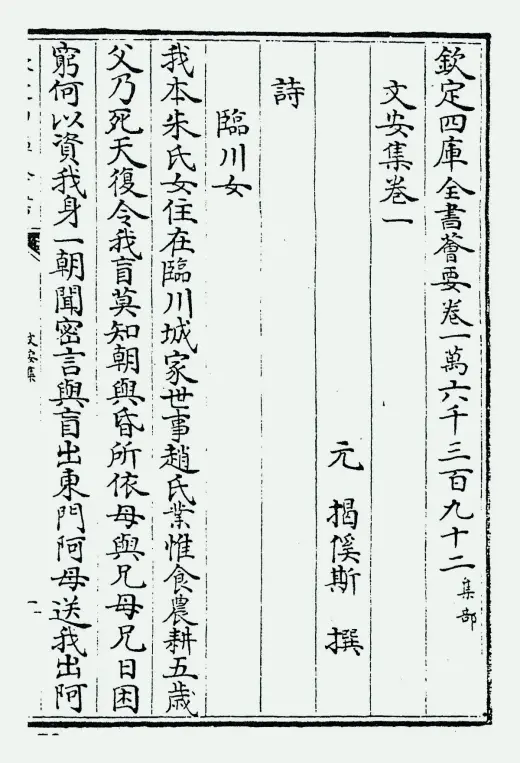 欽定四庫全書薈要卷一萬六千三百九十二 集部
文安集卷一
元 揭傒斯 撰
詩
臨川女
我本朱氏女住在臨川城家世事趙氏業惟食農耕五歳
父乃死天復令我盲莫知朝與昏所依母與兄母兄日困
窮何以資我身一朝聞密言與盲出東門阿母送我出阿
文安集